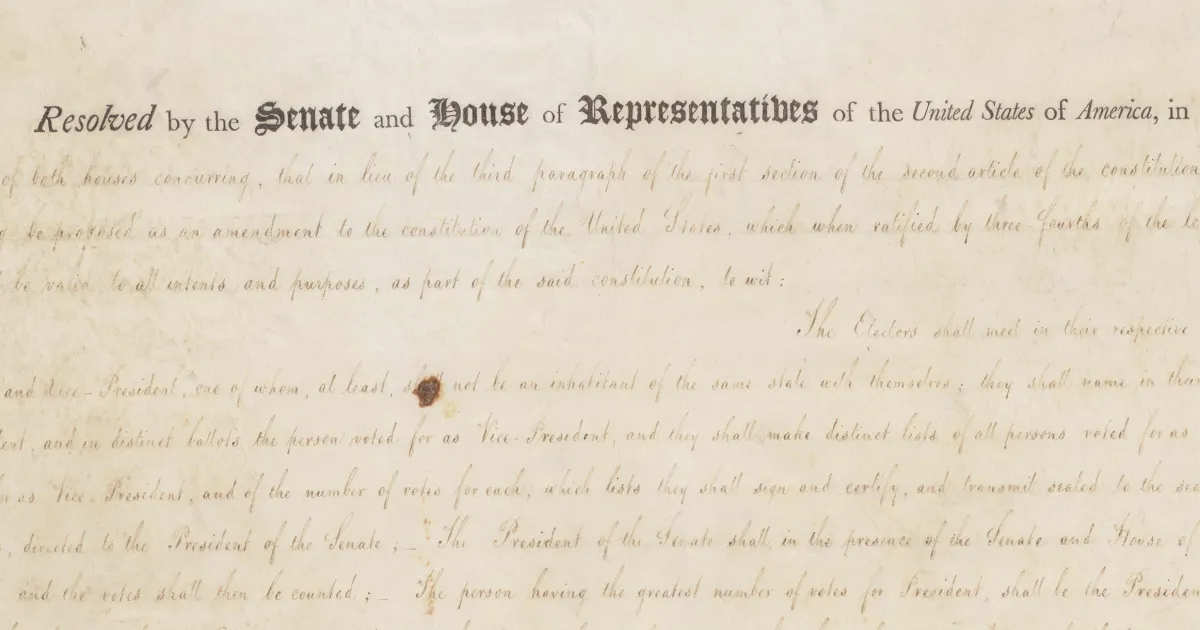 Resolved by the Senate and House of Representatives of the United States of America, in
of both houses concurring, that in lieu of the third paragraph of the first section of the second article of the constitution
be proposed as an amendment to the constitution of the United States, which when ratified by three-fourths of the
be valid to all intents and purposes, as part of the said constitution, to wit:
The Electors shall meet in their respective
and Vice-President, one of whom, at least, shall not be an inhabitant of the same state with themselves; they shall name in their
and in distinct ballots the person voted for as Vice-President, and they shall make distinct lists of all persons voted for as
as Vice-President, and of the number of votes for each, which lists they shall sign and certify, and transmit sealed to the
directed to the President of the Senate;_ The President of the Senate shall, in the presence of the Senate and House of
and the votes shall then be counted;_ The person having the greatest number of votes for President, shall be the President